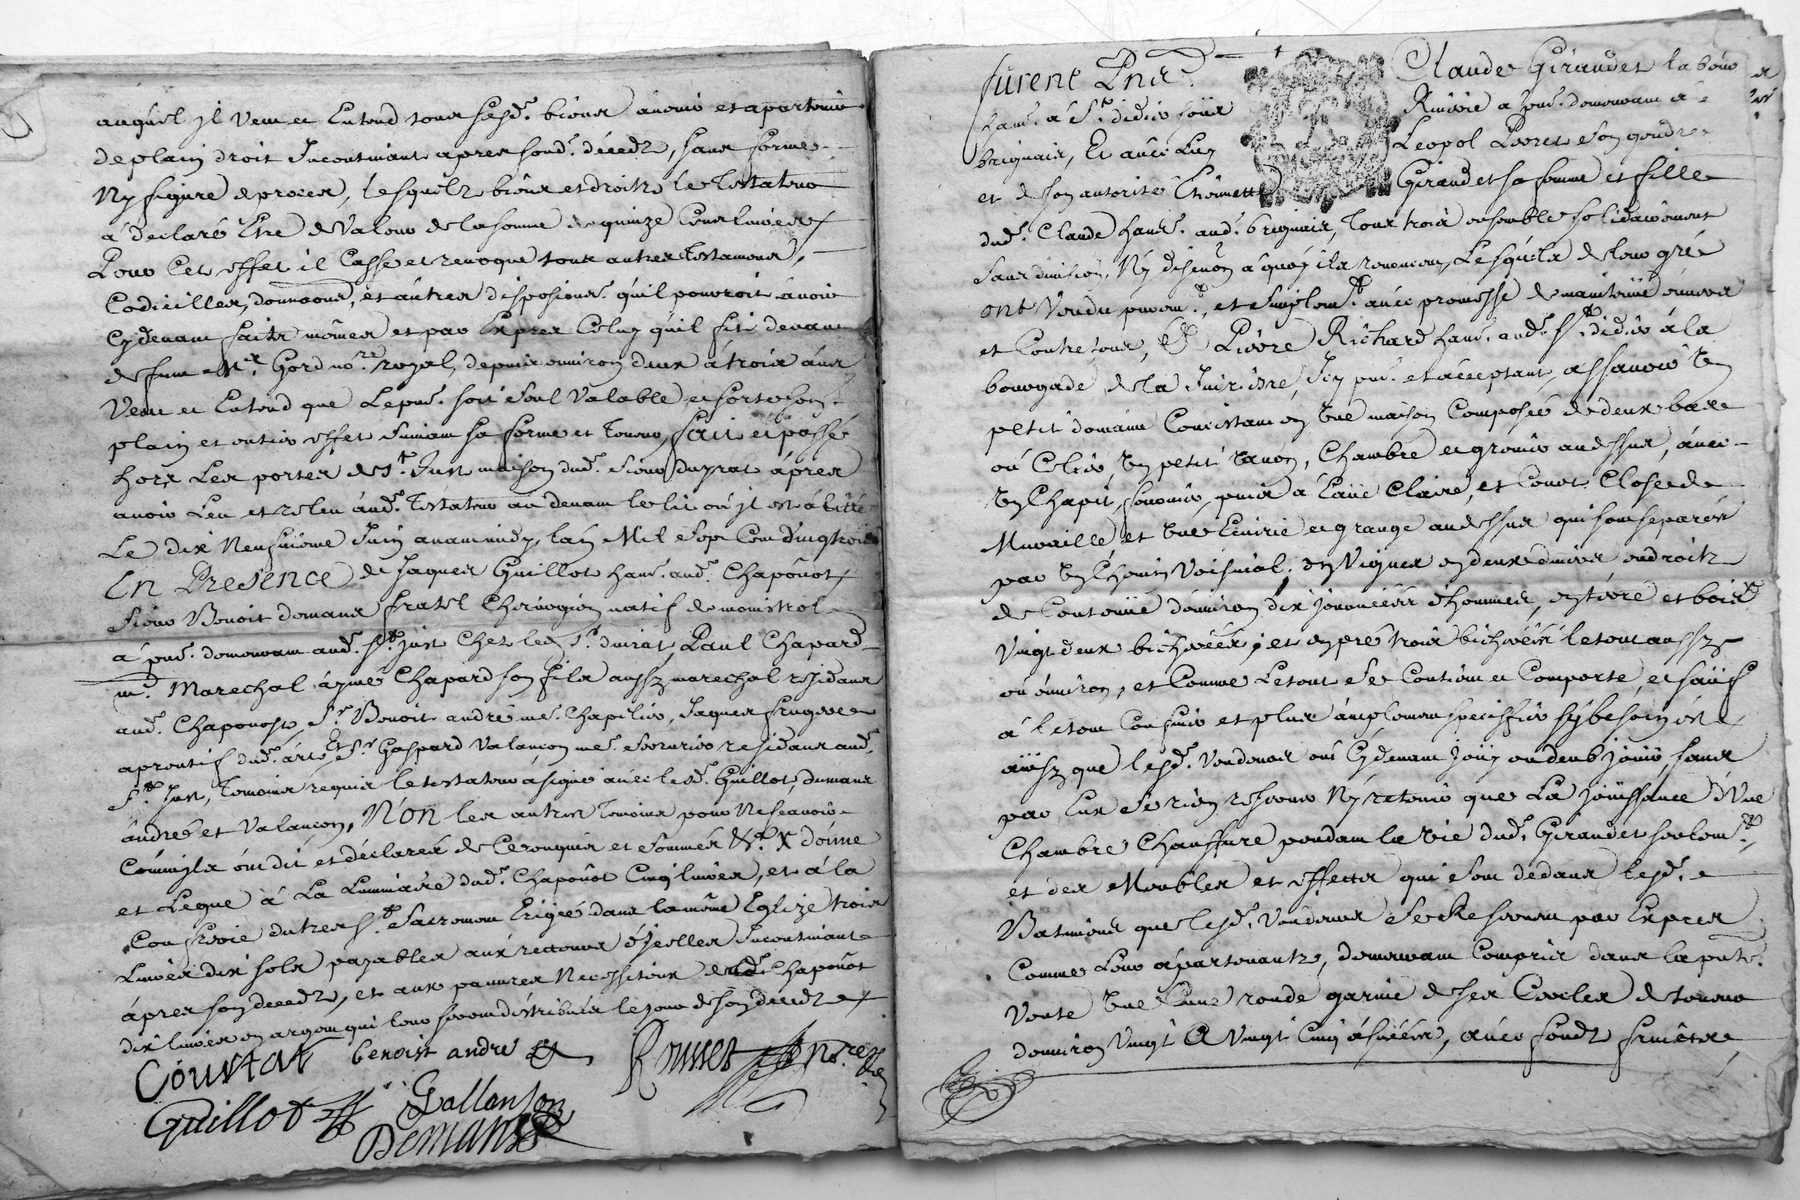 auquel jl veut et Entend tous sesd. biens avenir et apartenir
de plain droit Jncontinant apres sond. décedz, sans forme
Ny figure de procès, lesquelz biens et droitz le Testateur
à declaré Etre de Valeur de la somme de quinze Cent livres
Pour Cet effet il Casse et revoque tous autres testamens,
Codicilles, donnaons, et autres disposions. qu'il pourroit avoir
Cydevant faits mêmes et par Exprès Celuy qu'il fit devant
defunt Me. Gord nore. royal, depuis environ deux à trois ans
Veut et Entend que Le pnt. soit seul Valable et sorte son
plain et entier effet suivant sa forme et teneur, fait et passé
hors Les portes de St. Just maison dud. sieur duyrat après
avoir Leu et releu aud. Testateur au devant le lit où jl est alitté
Le dix Neufvieme Juin avant midy, l'an Mil Sept Cent Vingt trois
En Presence de Jaques Guillot habt. aud. Chaponost
sieur Benoit demans fratel Chirurgien natif de monistrol
à pnt. demeurant aud. St. just chez led. Sr. duirat, Paul Chapard
me. Marechal aymé Chapard son fils aussy marechal residans
aud. Chaponost, Sr. Benoit andré me. Chapelier, Jaques
aprentif dud. art et Sr Gaspard Valançon me. Serrurier residans aud.
St. Just, temoins requis le testateur a signé avec lesd. Guillot, demans
andré et Valançon, Non les autres temoins pour Ne scavoir
Comm'jls ont dit et déclaré de Ce enquis et sommés &a. X donne
et Legue à La Luminaire dud. Chaponost Cinq livres, et à la
Confrerie du tres St. Sacrement Erigée dans la même Eglize trois
Livres dix sols payables aux recteurs d'jcelles Jncontinant
apres son decedz, et aux pauvres Necessiteux dud. Chaponost
dix livres en argent qui leur seront distribuées le jour de son decedz
Coustat benoist andré Rousset Nore. R
Guillot Vallanson
Demans
furent Pnts. Claude Giraudet
habt. à St. didier sous Riverie à pnt. demeurant à
brignais, Et avec Luy Leopol son gendre
et de son autorité Thoinette Giraudet sa femme et fille
dud. Claude habts. aud. brignais, tous trois ensemble solidairement
sans division, Ny discution à quoy ils renoncent, Lesquels de leur gré
ont Vendu purement, et simplemt. avec promesse de maintenir envers
et Contre tous, A Pierre Richard habt. aud. St. didier à la
bourgade de la Jcy pnt. et acceptant, assavoir Un
petit domaine Consistant en Une maison Composée de deux bas
ou Celier Un petit , Chambre et grenier au dessus, avec
Un Chapit, , puis à L'aüe Claire, et Cour Close de
Muraille et Une Ecuirie et grange au dessus qui sont separées
par Un Chemin Voisinal, en Vignes en deux divers endroits
de Contenüe d'environ dix journeées d'hommes, en terre et bois
Vingt deux bicherées, et en pré trois bicherées le tout aussy
ou environ, et Comme Le tout Se Contient et Comporte, et sauf
à le tout Confiner et plus amplement specifier sy besoin est
ainsy que lesd. Vendeurs ont Cydevant joüy ou deub joüir, sans
par Eux Se rien reserver Ny retenir que La joüissance d'Une
Chambre Chauffure pendant la vie dud. Giraudet seulemt.
et des Meubles et effects qui sont dedans lesd.
Batimens que lesd. Vendeurs Se Reservent par Exprès
Comme Leur apartenants, demeurant Compris dans la pnte.
Vente Une Cuve ronde garnie de ses Cercles de teneur
d'environ Vingt A Vingt Cinq asnées, avec fondz